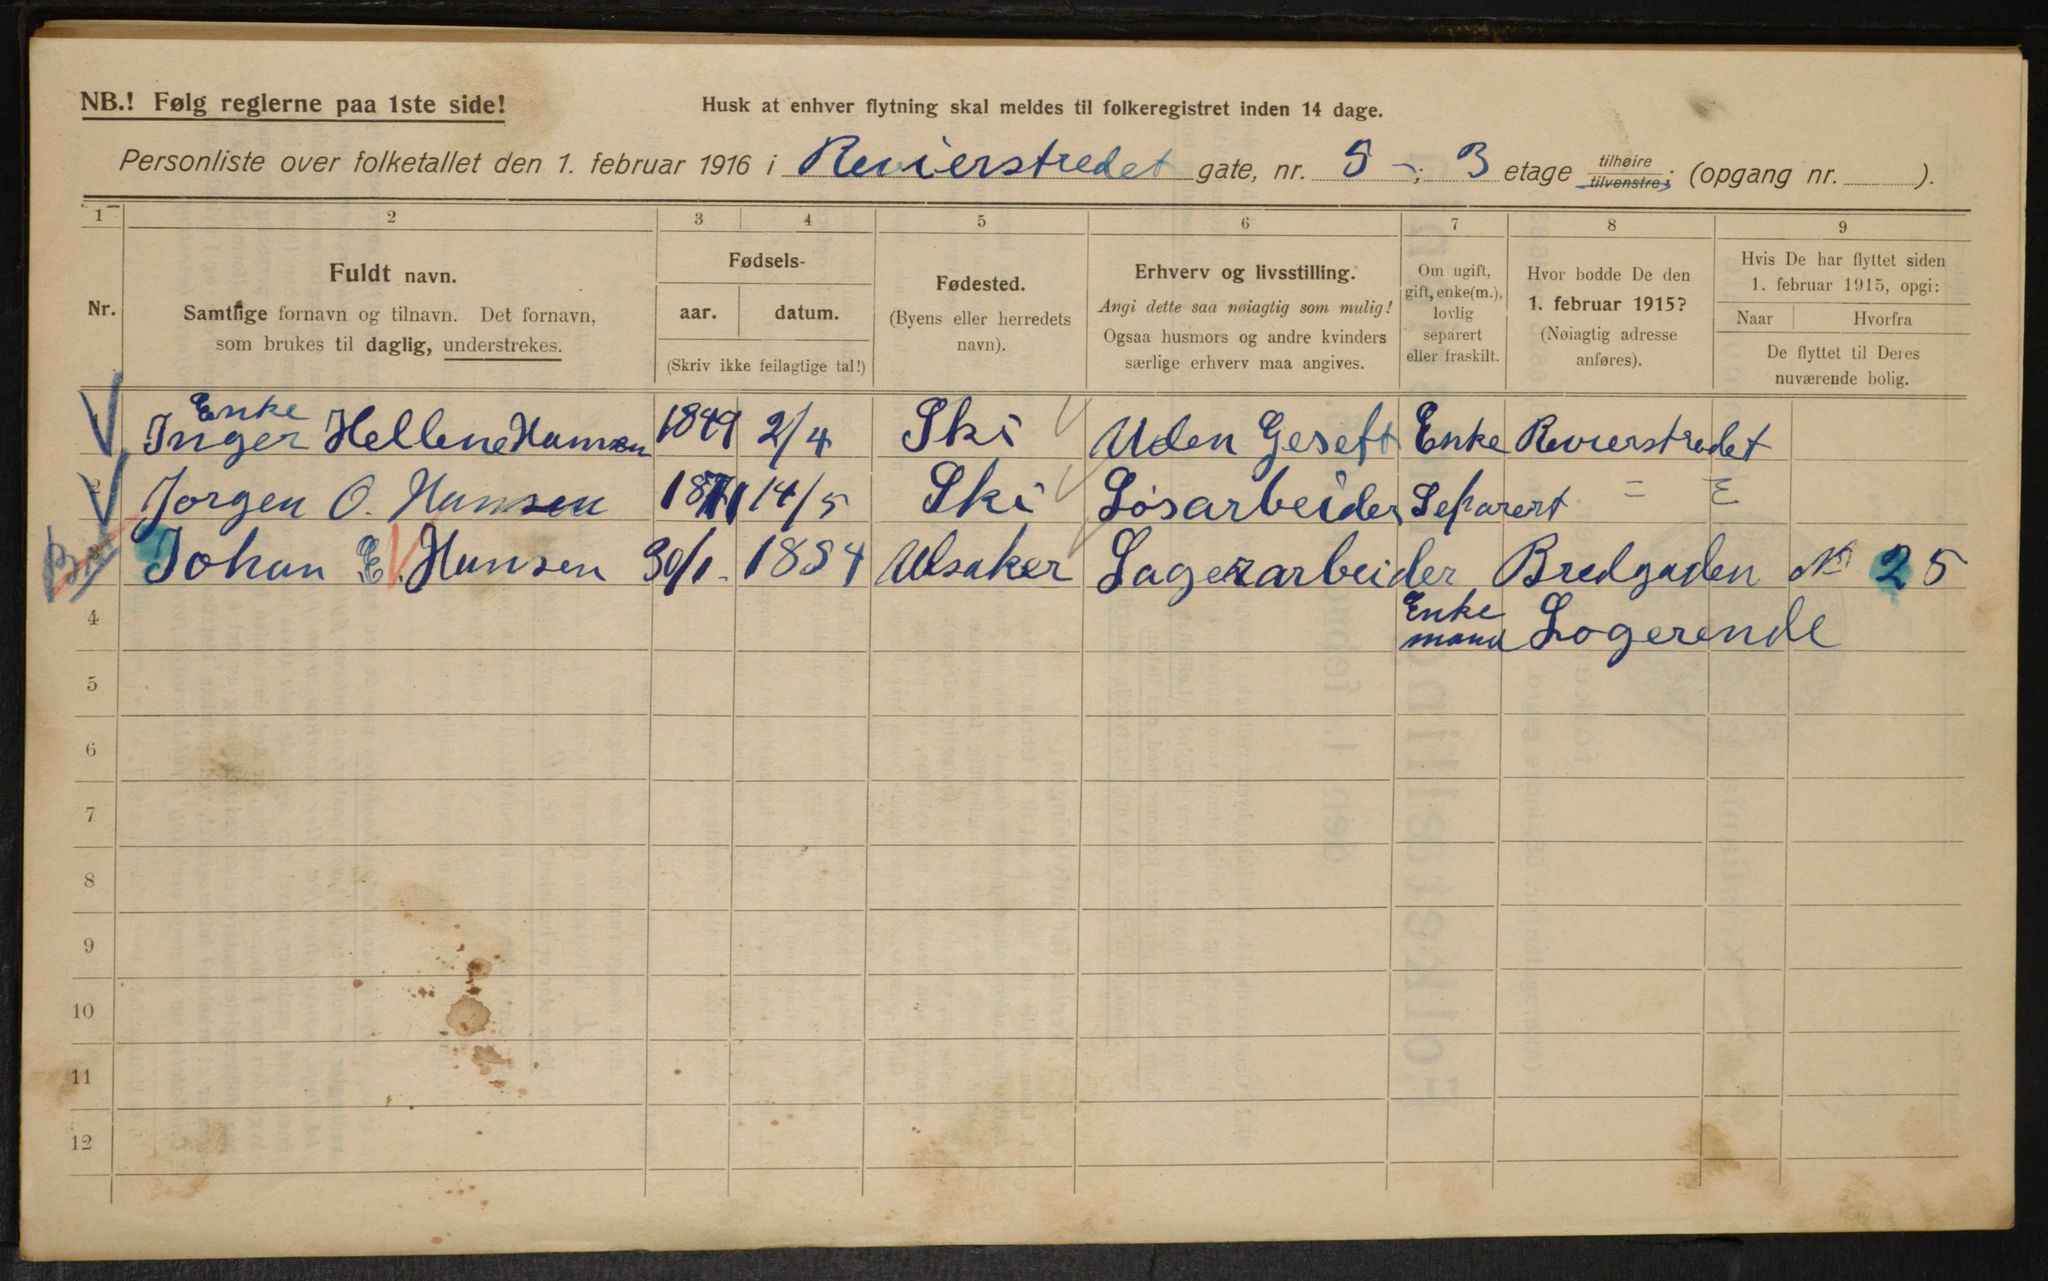 NB.! Følg reglerne paa 1ste side!
Husk at enhver flytning skal meldes til folkeregistret inden 14 dage.
Personliste over folketallet den 1. februar 1916 i Revierstredet gate, nr. 5 -; 3 etage tilhøire tilvenstre; (opgang nr. ).
1 2 3 4 5 6 7 8 9
Nr.
Fuldt navn.
Samtlige fornavn og tilnavn. Det fornavn,
som brukes til daglig, understrekes.
Fødsels-
aar. datum.
(Skriv ikke feilagtige tal!)
Fødested.
(Byens eller herredets
navn).
Erhverv og livsstilling.
Angi dette saa nøiagtig som mulig!
Ogsaa husmors og andre kvinders
særlige erhverv maa angives.
Om ugift,
gift, enke(m.),
lovlig
separert
eller fraskilt.
Hvor bodde De den
1. februar 1915?
(Nøiagtig adresse
anføres).
Hvis De har flyttet siden
1. februar 1915, opgi:
Naar Hvorfra
De flyttet til Deres
nuværende bolig.
Enke
Inger Hellene Hansen 1849 2/4 Ski Uden Geseft Enke Revierstredet
2 Jorgen O. Hansen 1871 14/5 Ski Løsarbeider Separert = =
Johan E. Hansen 30/1 - 1854 Ulsaker Lagerarbeider Bredgaden No 25
4 Enke
mand Logerende
5
6
7
8
9
10
11
12